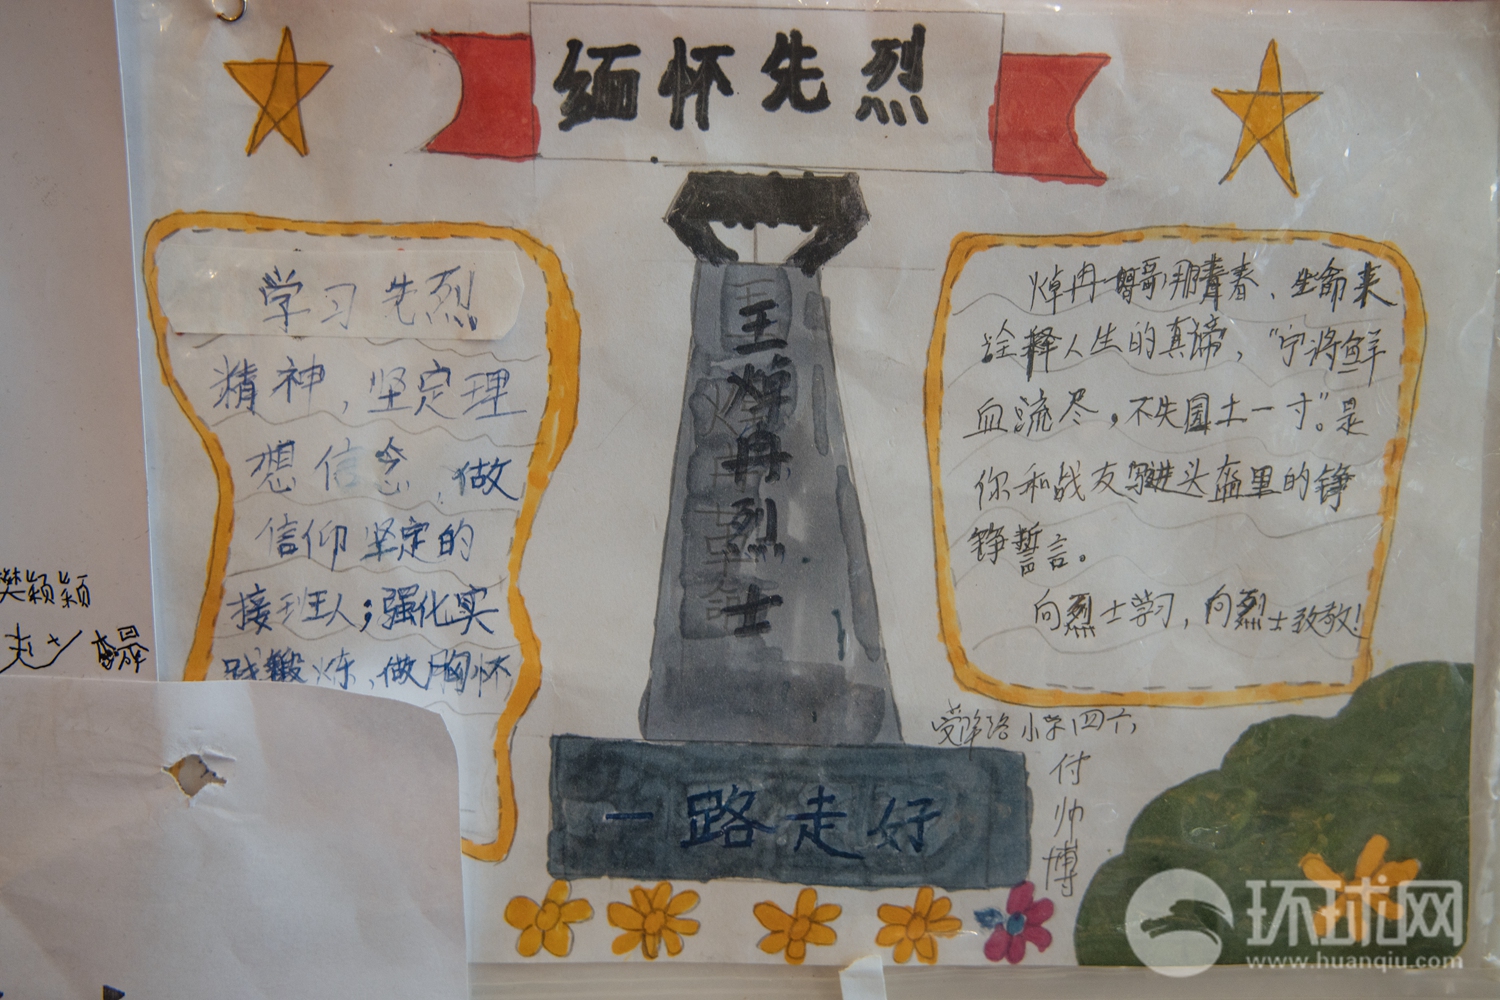 缅怀先烈
学习先烈
精神，坚定理
想信念，做
信仰坚定的
接班人；强化实
践锻炼，做胸怀
王焯冉烈士
一路走好
焯冉 用青春、生命来
诠释人生的真谛，“宁将鲜
血流尽，不失国土一寸”。是
你和战友写进头盔里的铮
铮誓言。
向烈士学习，向烈士致敬！
小学四六
付帅博
樊颖颖
环球网
www.huanqiu.com